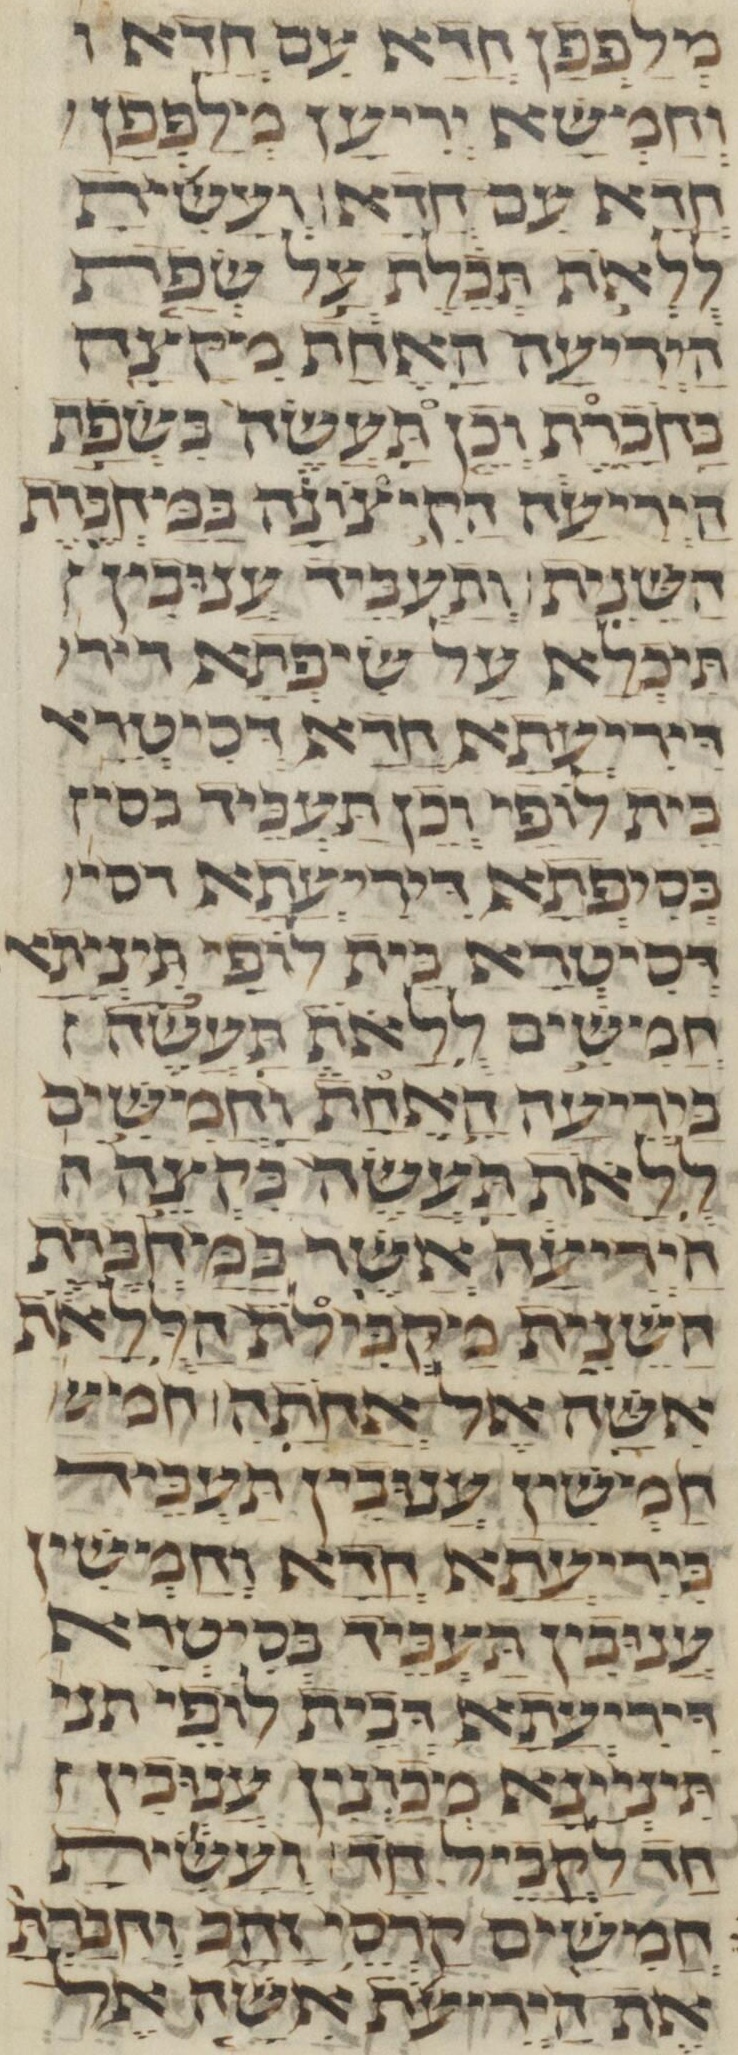 מלפפן חדא עם חדא ו
וחמישא יריען מילפפן
חדא עם חדא ועשית
ללאת תכלת על שפת
היריעה האחת מקצה
בחברת וכן תעשה בשפת
היריעה הקיצונה במחברת
השנית ותעביד ענובין
תיכלא על שיפתא דיר
דיריעתא חדא דכיטרא
בית לופי וכן תעביד בסין
בסיפתא דיריעתא דסי
דסיטרא בית לופי תיניתא
חמישים ללאת תעשה
ביריעה האחת וחמישים
ללאת תעשה בקצה ה
היריעה אשר במיחברת
השנית מקבילת הללאת
אשה אל אחתה חמיש
חמישין ענובין תעביד
ביריעתא חדא וחמישין
ענובין תעביד בסיטרא
דיריעתא דבית לופי תני
תיניינא מכוונין ענובין
חד לקביל חד ועשית
חמשים קרסי זהב וחברת
את היריעת אשה אל